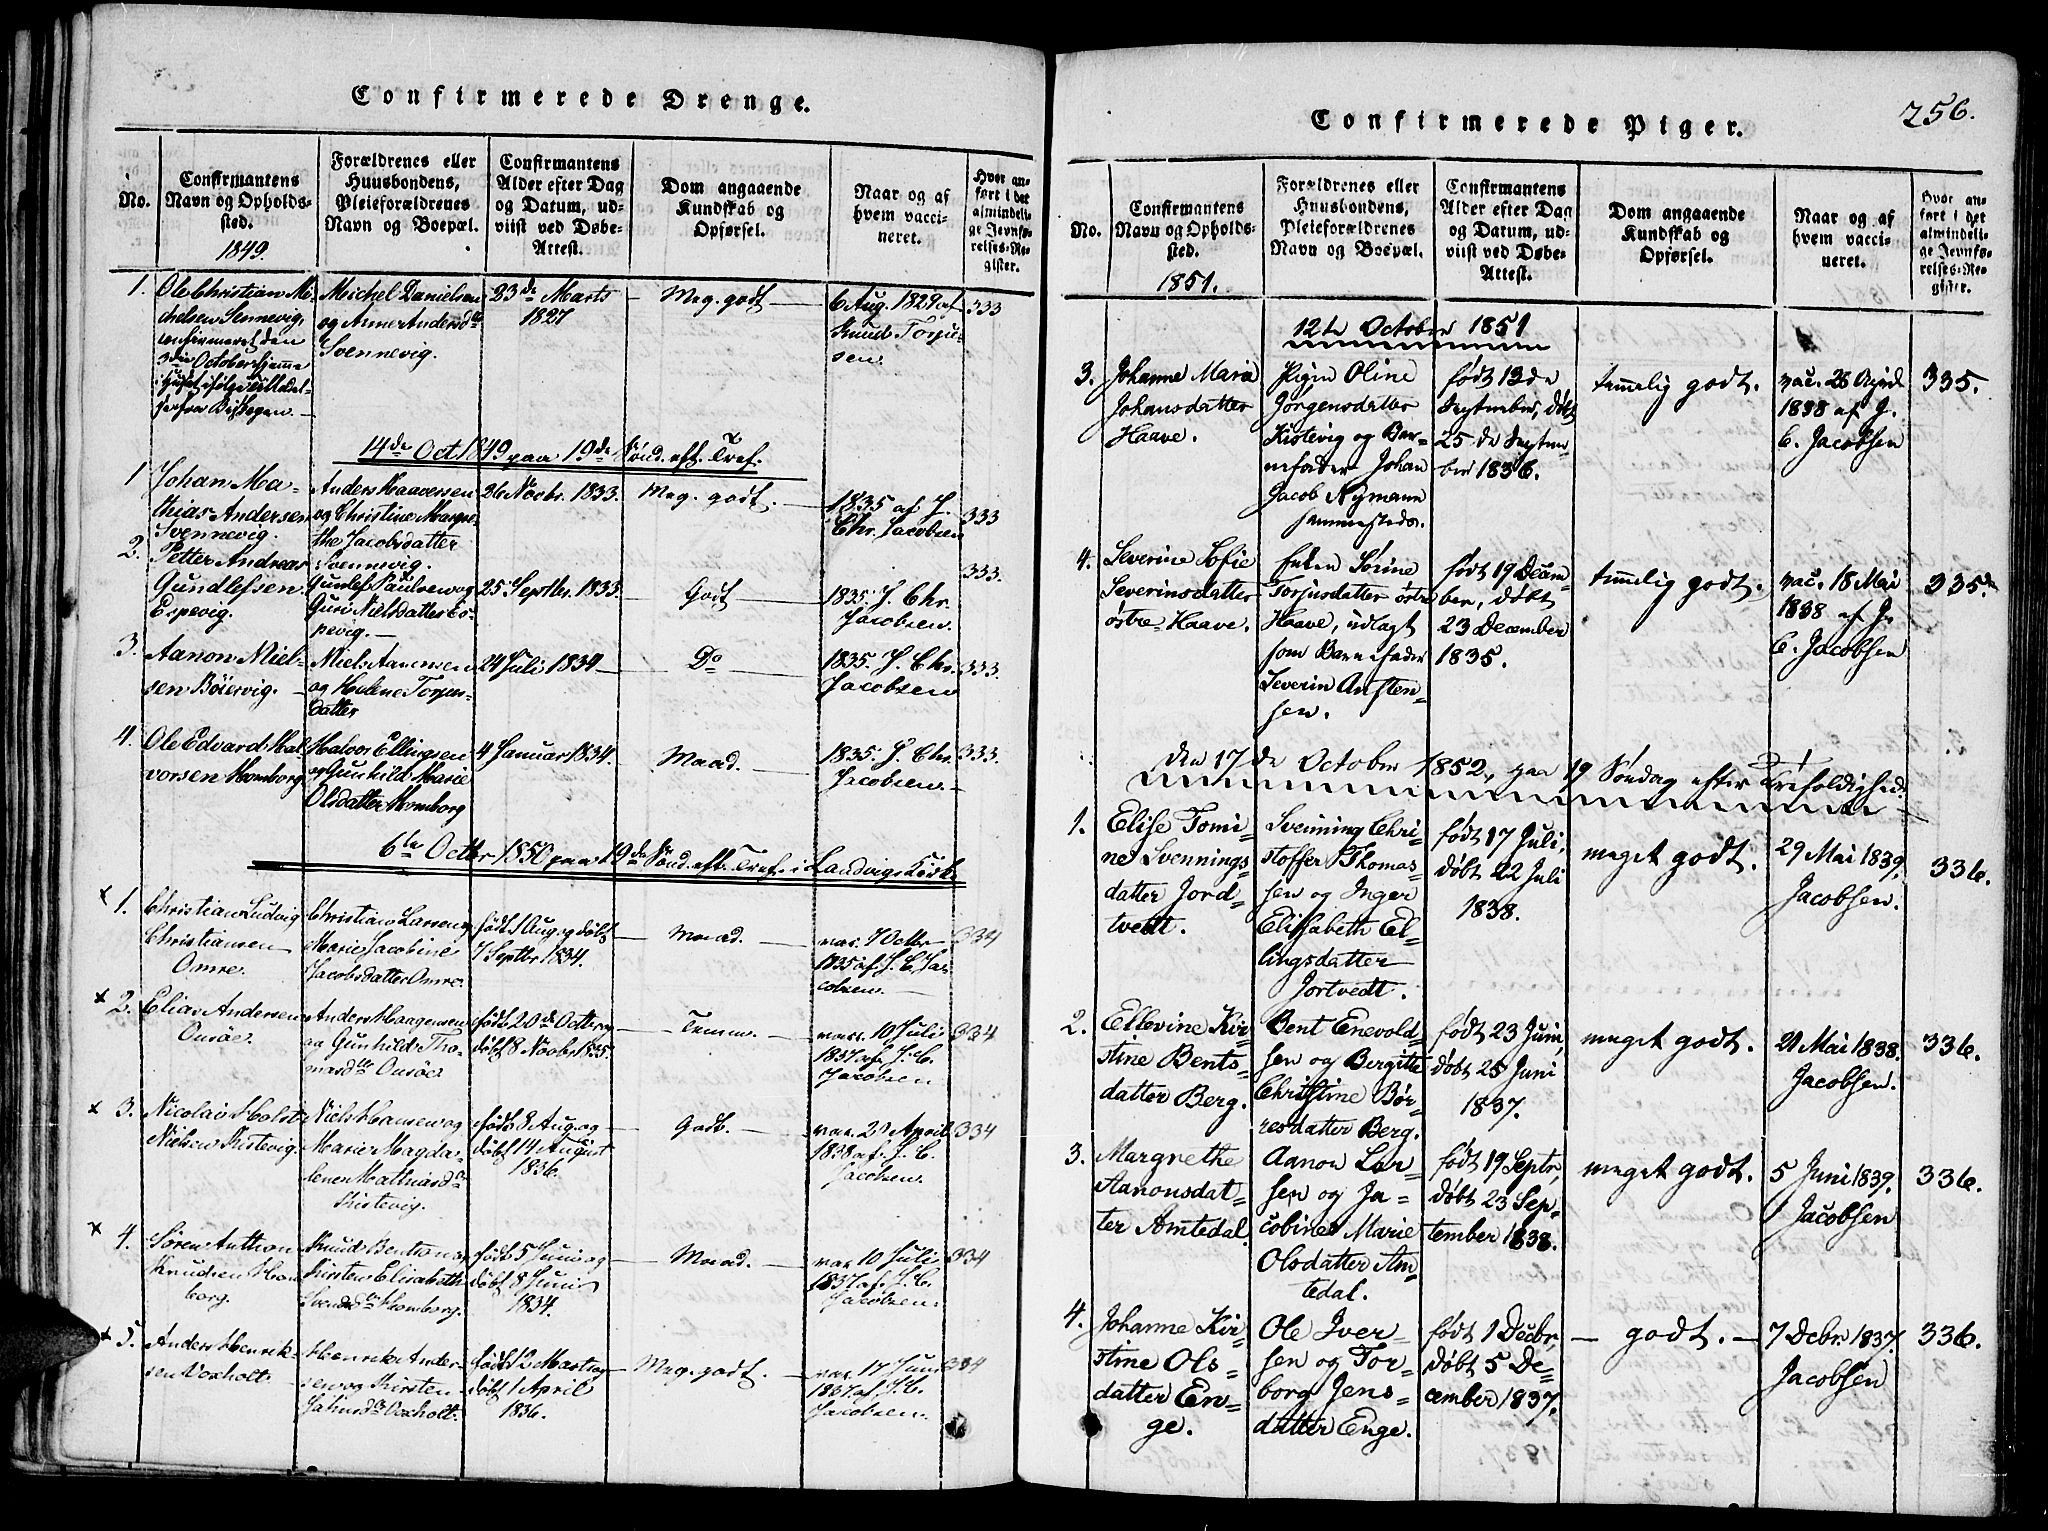 Confirmerede Drenge.
No.
Confirmantens
Navn og Opholds-
sted.
1849.
Forældrenes eller
Huusbondens,
Pleieforældrenes
Navn og Boepæl.
Confirmantens
Alder efter Dag
og Datum, ud-
viist ved Døbe-
Attest.
Dom angaaende
Kundskab og
Opførsel.
Naar og af
hvem vacci-
neret.
Hvor an-
ført i det
almindeli-
ge Jevnfø-
relses-Re-
gister.
1.
Ole Christian Mi-
chelsen Sennevig,
confirmeret den
3die October hjemme
i Huset ifølge Tilladel-
se fra Bispen
Michel Danielsen
og Anne Andersdtr
Svennevig.
23de Marts
1827
Meg. godt
6 Aug. 1829 af
Knud Torju-
sen.
333
14de Oct 1849 paa 19de Sønd. eft. Tref.
1
Johan Ma-
thias Andersen
Svennevig.
Anders Haaversen
og Christine Margre-
the Jacobsdatter
Svennevig.
26 Novbr. 1833.
Meg. godt.
1835 af J.
Chr. Jacobsen
333
2.
Petter Andreas
Gundlefsen
Espevig.
Gunlef Paulsen og
Guri Nielsdatter Es-
pevig.
25 Septbr. 1833
Godt
1835. J. Chr.
Jacobsen.
333.
3.
Aanon Niel-
sen Böiervig.
Niels Aanensen
og Helene Torjus-
datter
24 Juli 1834
Do
1835. J. Chr.
Jacobsen
333.
4.
Ole Edvard Hal-
vorsen Homborg
Halvor Ellingsen
og Gunhild Marie
Olsdatter Homborg
4 Januar 1834.
Maad.
1835. J. Chr.
Jacobsen.
333.
6te Octbr 1850 paa 19de Sønd. eft. Tref. i Landvigs Kirke
x 1.
Christian Ludvig
Christiansen
Omre.
Christian Larsen og
Marie Jacobine
Jacobsdatter Omre.
født 1 Aug. og døbt
7 Septbr 1834.
Maad.
vac. 7 Octbr
1835 af J. C. Ja-
cobsen
334
x 2.
Elias Andersen
Omsöe.
Anders Haagensen
og Gunhild Tho-
masdtr Omsöe.
født 20de Octbr og
døbt 8 Novbr 1835.
Temm.
vac. 10 Juli
1837 af J. C.
Jacobsen
334
x 3.
Nicolai Holst
Nielsen Kistevig.
Niels Hansen og
Marie Magda-
lene Mathiasdtr
Kistevig.
født 8 Aug. og
døbt 14 August
1836.
Godt.
vac. 20 April
1838 af J. C.
Jacobsen.
334
x 4.
Søren Anthon
Knudsen Hom-
borg.
Knud Bentson og
Kirsten Elisabeth
Svendsdtr Homborg.
født 5 Juni og
døbt 8 Juni
1834.
Maad.
vac. 10 Juli
1837 af J. C.
Jacobsen.
334
x 5.
Anders Henrik-
sen Voxholt.
Henrik Ander-
sen og Kirsten
Voxholt.
født 12 Marts og
døbt 1 April
1836.
Meg. godt.
vac. 17 Juni
1837 af J. C.
Jacobsen.
334
Confirmerede Piger.
256.
No.
Confirmantens
Navn og Opholds-
sted.
1851.
Forældrenes eller
Huusbondens,
Pleieforældrenes
Navn og Boepæl.
Confirmantens
Alder efter Dag
og Datum, ud-
viist ved Døbe-
Attest.
Dom angaaende
Kundskab og
Opførsel.
Naar og af
hvem vacci-
neret.
Hvor an-
ført i det
almindeli-
ge Jevnfø-
relses-Re-
gister.
12te October 1851
3.
Johanne Maria
Johansdatter
Haave.
Pigen Oline
Jörgensdatter
Kistevig og Bar-
nefader Johan
Jacob Nymann
sammesteds.
født 13de
September, døbt
25de Septem-
ber 1836.
temmelig godt.
vac. 26 April
1838 af J.
C. Jacobsen
335.
4.
Severine Sofie
Severinsdatter
østre Haave.
Enken Sörine
Torjusdatter østre
Haave, udlagt
som Barnefader
Severin Ansten-
sen.
født 19 Decem-
ber, døbt
23 December
1835.
temmelig godt.
vac. 18 Mai
1838 af J.
C. Jacobsen
335.
den 17de October 1852, paa 19 Søndag efter Trefoldighed.
1.
Elise Tomi-
ne Svennings-
datter Jord-
tvedt.
Svenning Chri-
stoffer Thomas-
sen og Inger
Elisabeth El-
lingsdatter
Jortvedt.
født 17 Juli,
døbt 22 Juli
1838.
meget godt.
29 Mai 1839.
Jacobsen.
336.
2.
Ellevine Kir-
stine Bents-
datter Berg.
Bent Enevold-
sen og Bergitte
Christine Bör-
resdatter Berg.
født 23 Juni,
døbt 25 Juni
1837.
meget godt.
21 Mai 1838.
Jacobsen.
336.
3.
Margrethe
Aanonsdat-
ter Amtedal
Aanon Lar-
sen og Ja-
cobine Marie
Olsdatter Am-
tedal.
født 19 Septr,
døbt 23 Sep-
tember 1838.
meget godt.
5 Juni 1839.
Jacobsen
336.
4.
Johanne Kir-
stine Ols-
datter En-
ge.
Ole Iver-
sen og Tor-
borg Jens-
datter Enge.
født 1 Decbr,
døbt 5 De-
cember 1837.
godt.
7 Debr. 1837.
Jacobsen
336.